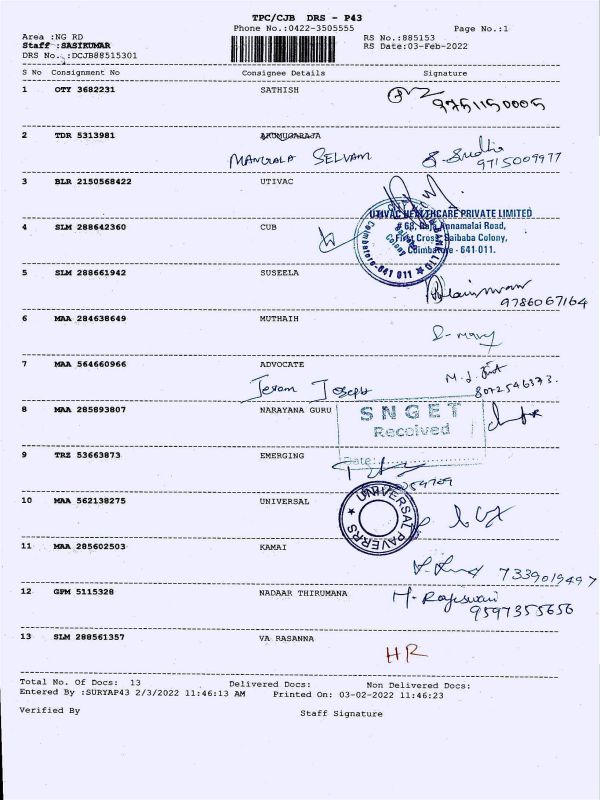 TPC/CJB DRS - P43
Phone No.:0422-3505555 Page No.:1
Area :NG RD RS No.:885153
Staff :SASIKUMAR RS Date:03-Feb-2022
DRS No. :DCJB88515301
S No Consignment No Consignee Details Signature
1 OTY 3682231 SATHISH
9751150005
2 TDR 5313981 ARUMUGARAJA
MANGALA SELVAM
9715009977
3 BLR 2150568422 UTIVAC
UTIVAC HEALTHCARE PRIVATE LIMITED
# 68, Raja Annamalai Road,
4 SLM 288642360 CUB
First Cross, Saibaba Colony,
Coimbatore - 641 011.
5 SLM 288661942 SUSEELA
9786067164
6 MAA 284638649 MUTHAIH
7 MAA 564660966 ADVOCATE
Joseph 8072546373.
8 MAA 285893807 NARAYANA GURU
SNGET
Received
9 TRZ 53663873 EMERGING
Date:
10 MAA 562138275 UNIVERSAL
UNIVERSAL PAVERRS
11 MAA 285602503 KAMAI
7339019497
12 GPM 5115328 NADAAR THIRUMANA
M. Rajeswari
9597355656
13 SLM 288561357 VA RASANNA
HR
Total No. Of Docs: 13 Delivered Docs: Non Delivered Docs:
Entered By :SURYAP43 2/3/2022 11:46:13 AM Printed On: 03-02-2022 11:46:23
Verified By Staff Signature